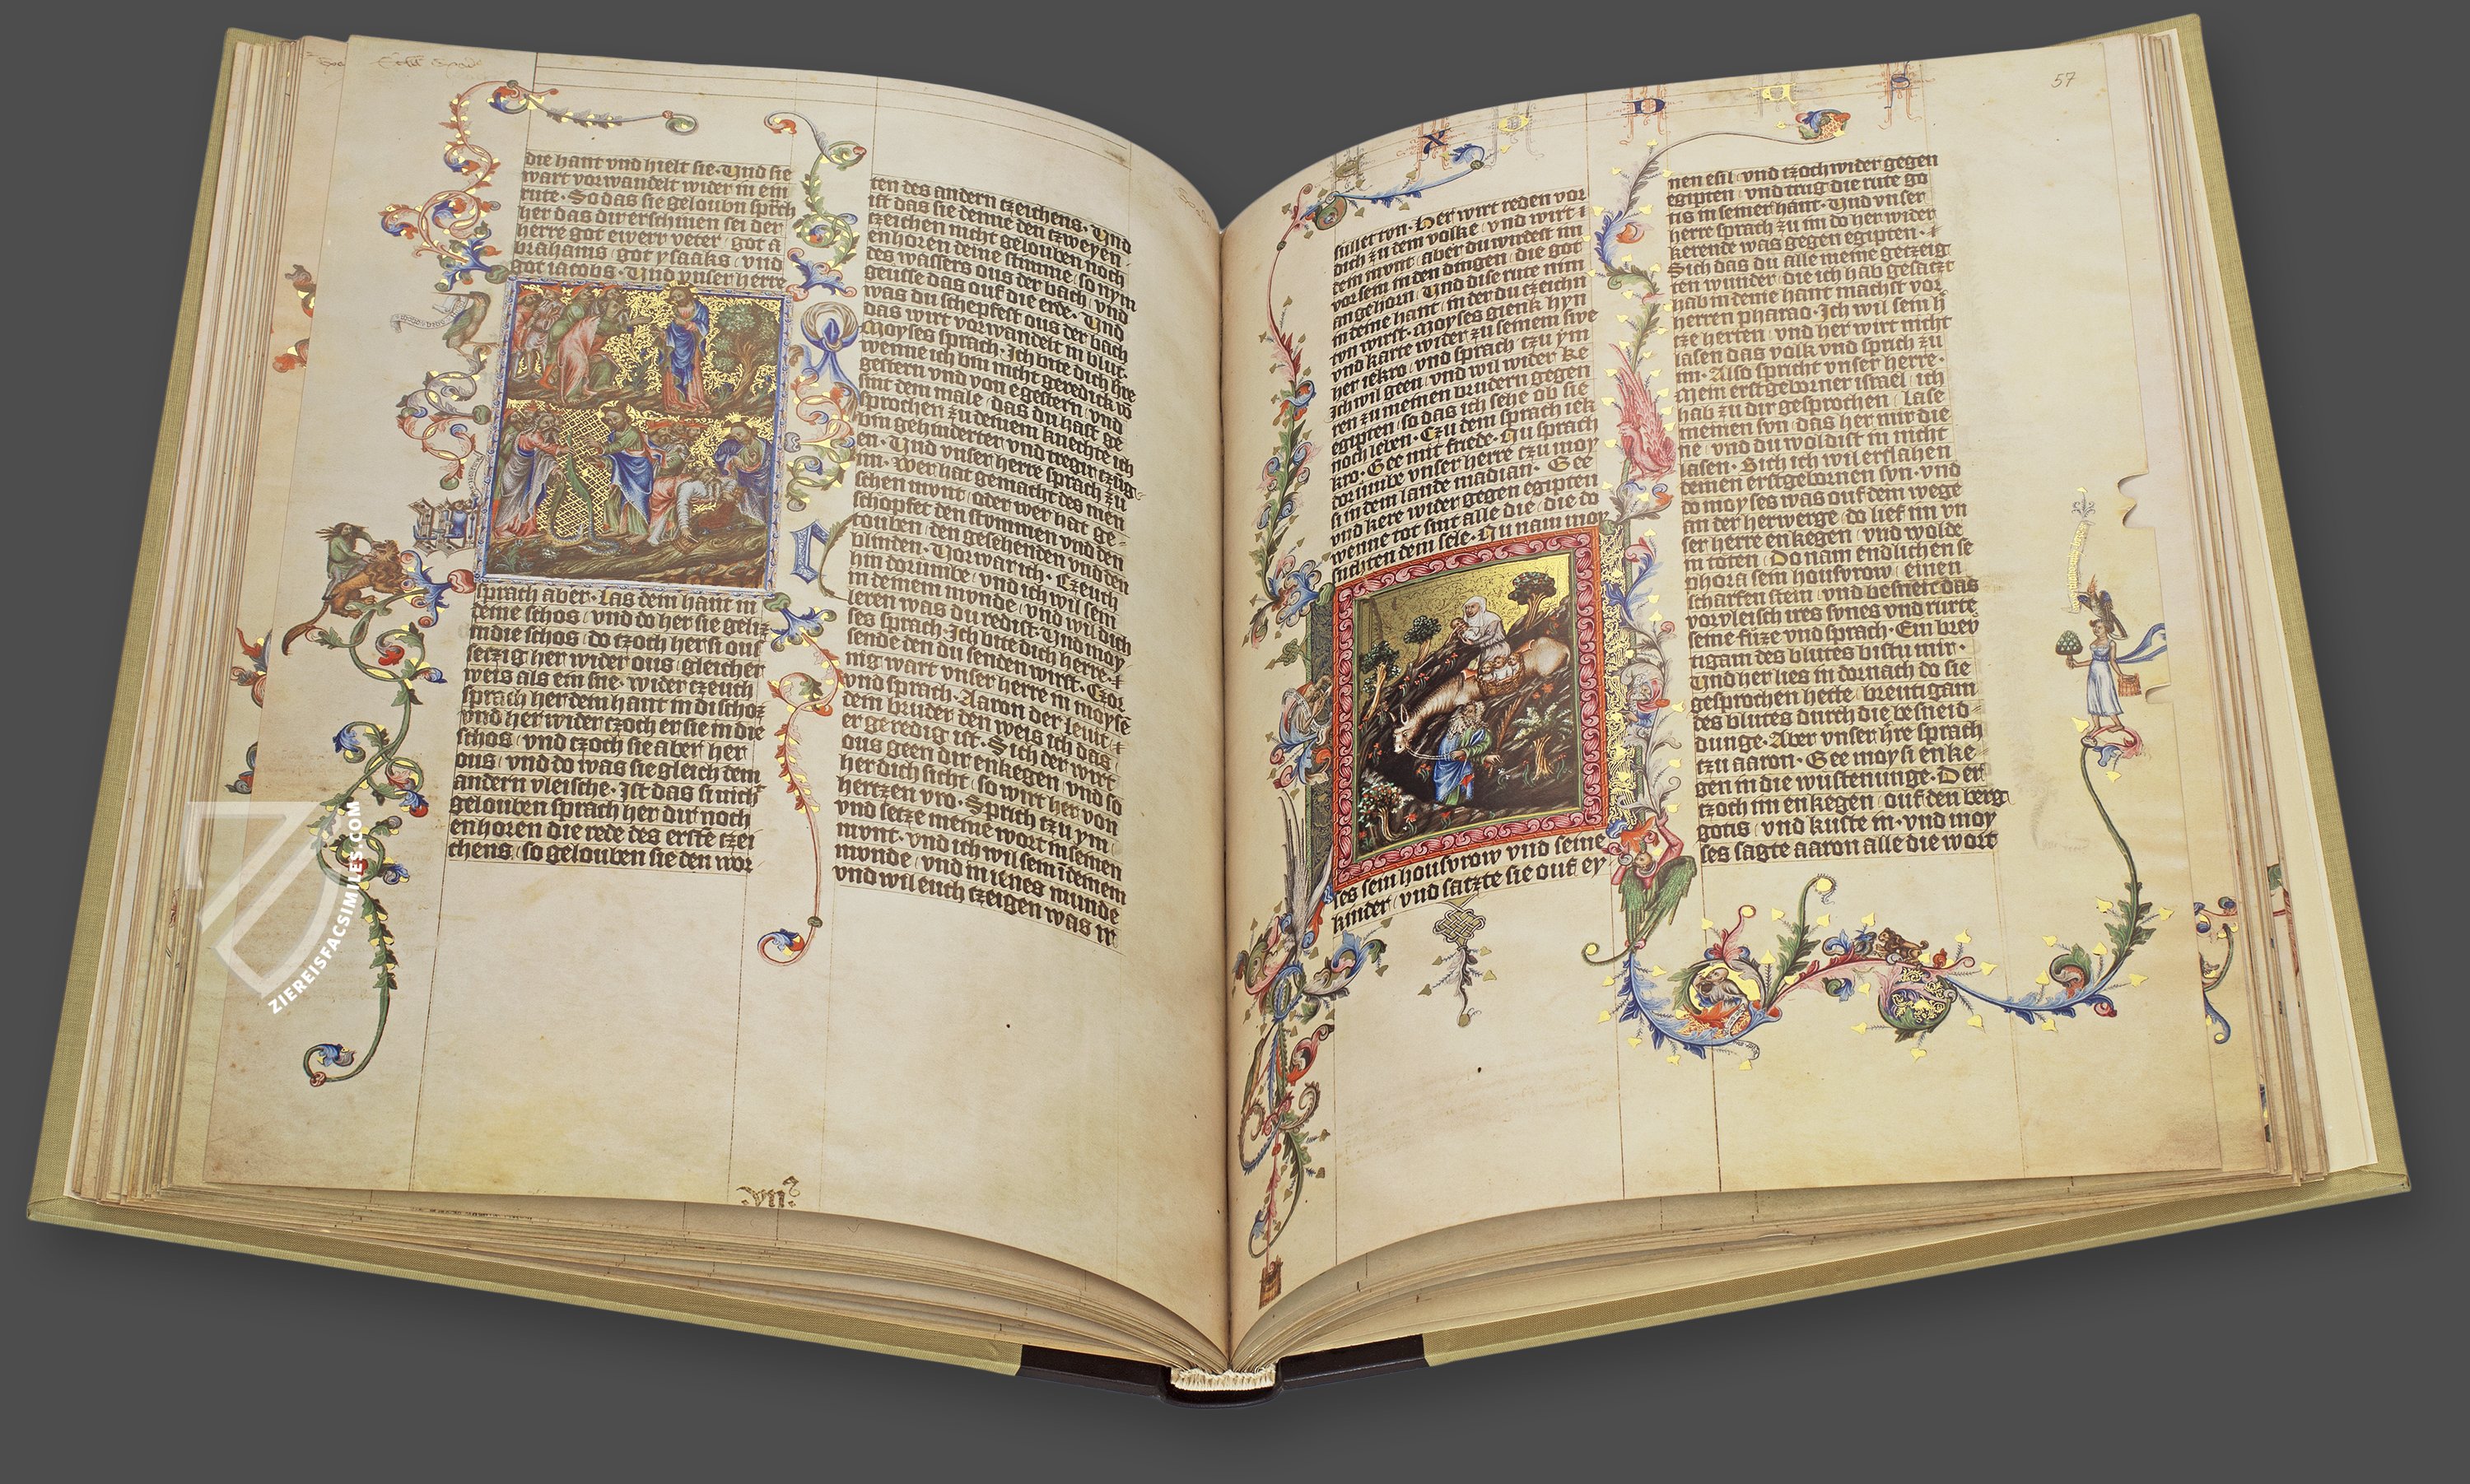 die hant vnd hielt sie· Und sie
wart vorwandelt wider in ein
rute· So das sie geloubn sprch
her das dir erschinen sei der
herre got ewerr veter got a
brahams got ysaaks vnd
got iacobs· Und vnser herre
sprach aber· las dein hant in
deine schos vnd do her sie
in die schos do tzoch her si ous
setzig her wider ous gleicher
weis als ein sne· wider tzeuch
sprach her dein hant in di schoz
vnd her wider tzoch er sie in die
schos vnd tzoch sie aber her
ous vnd do was sie gleich dem
andern vleische· Ist das si nich
gelouben sprach her dir noch
enhoren die rede des erste tzei
chens so gelouben sie den wor
ten des andern tzeichens· Und
ist das sie denne den tzweyen
tzeichen nicht gelouben noch
enhoren deine stimme so nym
des wassers ous der bach vnd
geusse das ouf die erde· Und
was du schepfest ous der bach
das wirt vorwandelt in blut·
Moyses sprach· Ich bite dich hre
wenne ich bin nicht geredick vo
gestern vnd von egestern vnd
sint dem male das du hast ge
sprochen zu deinem knechte ich
bin gehinderter vnd tregir tzug
en· Und vnser herre sprach zu
im· Wer hat gemacht des men
schen mvnt oder wer hat ge
schopfet den stvmmen vnd den
touben den gesehenden vnd den
blinden· Vor war ich· Tzeuch
hin dorumbe vnd ich wil sein
in deinem munde vnd wil dich
leren was du redist· Und moy
ses sprach Ich bite dich herre·
sende den du senden wirst· Czor
nig wart vnser herre in moyse
vnd sprach· Aaron der leuit
dein bruder den weis ich das
er geredig ist· Sich der wirt
ous geen dir enkegen vnd so
her dich sicht so wirt her von
hertzen vro· Sprich tzu ym
vnd setze meine wort in seinen
mvnt· vnd ich wil sein in deinem
munde vnd in ienes munde
vnd wil euch tzeigen was ir
57
X
D
sullet tvn· Her wirt reden vor
dich zu dem volke vnd wirt
dein mvnt aber du wirdest im
vor sein in den dingen die got
an gehorn· Und dise rute nim
in deine hant in der du tzeichn
tvn wirst· Moyses gienk hyn
vnd karte wider zu seinem swe
her iekro vnd sprach tzu ym
Ich wil geen vnd wil wider ke
ren zu meinen brudern gegen
egipten so das ich sehe ob sie
noch leben· Czu dem sprach iek
kro· Gee mit friede· Nu sprach
dorumbe vnser herre tzu moy
si in dem lande madian· Gee
vnd kere wider gegen egipten
wenne tot sint alle die die do
suchten dein sele· Nu nam moy
ses sein housvrow vnd seine
kinder vnd satzte sie ouf ey
nen esil vnd tzoch wider gegen
egipten vnd trug die rute go
tis in seiner hant· Und vnser
herre sprach zu im do her wider
kerende was gegen egipten·
Sich das du alle meine getzeig
ten wunder die ich hab gesatzt
hab in deine hant machst vor
herren pharao· Ich wil sein h
tze herten vnd her wirt nicht
lasen das volk vnd sprich zu
im· Also spricht vnser herre·
Mein erstgeborner israel ich
hab zu dir gesprochen lase
meinen svn das her mir die
ne vnd du woldist in nicht
lasen· Sich ich wil erslahen
deinen erstgebornen svn· vnd
do moyses was ouf dem wege
an der herwerge do lief im vn
ser herre enkegen vnd wolde
in toten· Do nam endlichen se
phora sein housvrow einen
scharfen stein vnd besneit das
vorvleisch ires synes vnd rurte
seine fuze vnd sprach· Ein brev
tigam des blutes bistu mir·
Und her lies in dornach do sie
gesprochen hette breutigam
des blutes durch die besneid
dunge· Aber vnser hre sprach
tzu aaron· Gee moysi enke
gen in die wustenunge· Der
tzoch im enkegen ouf den berg
gotis vnd kuste in· vnd moy
ses sagte aaron alle die wort
ZIEREISFACSIMILES.COM